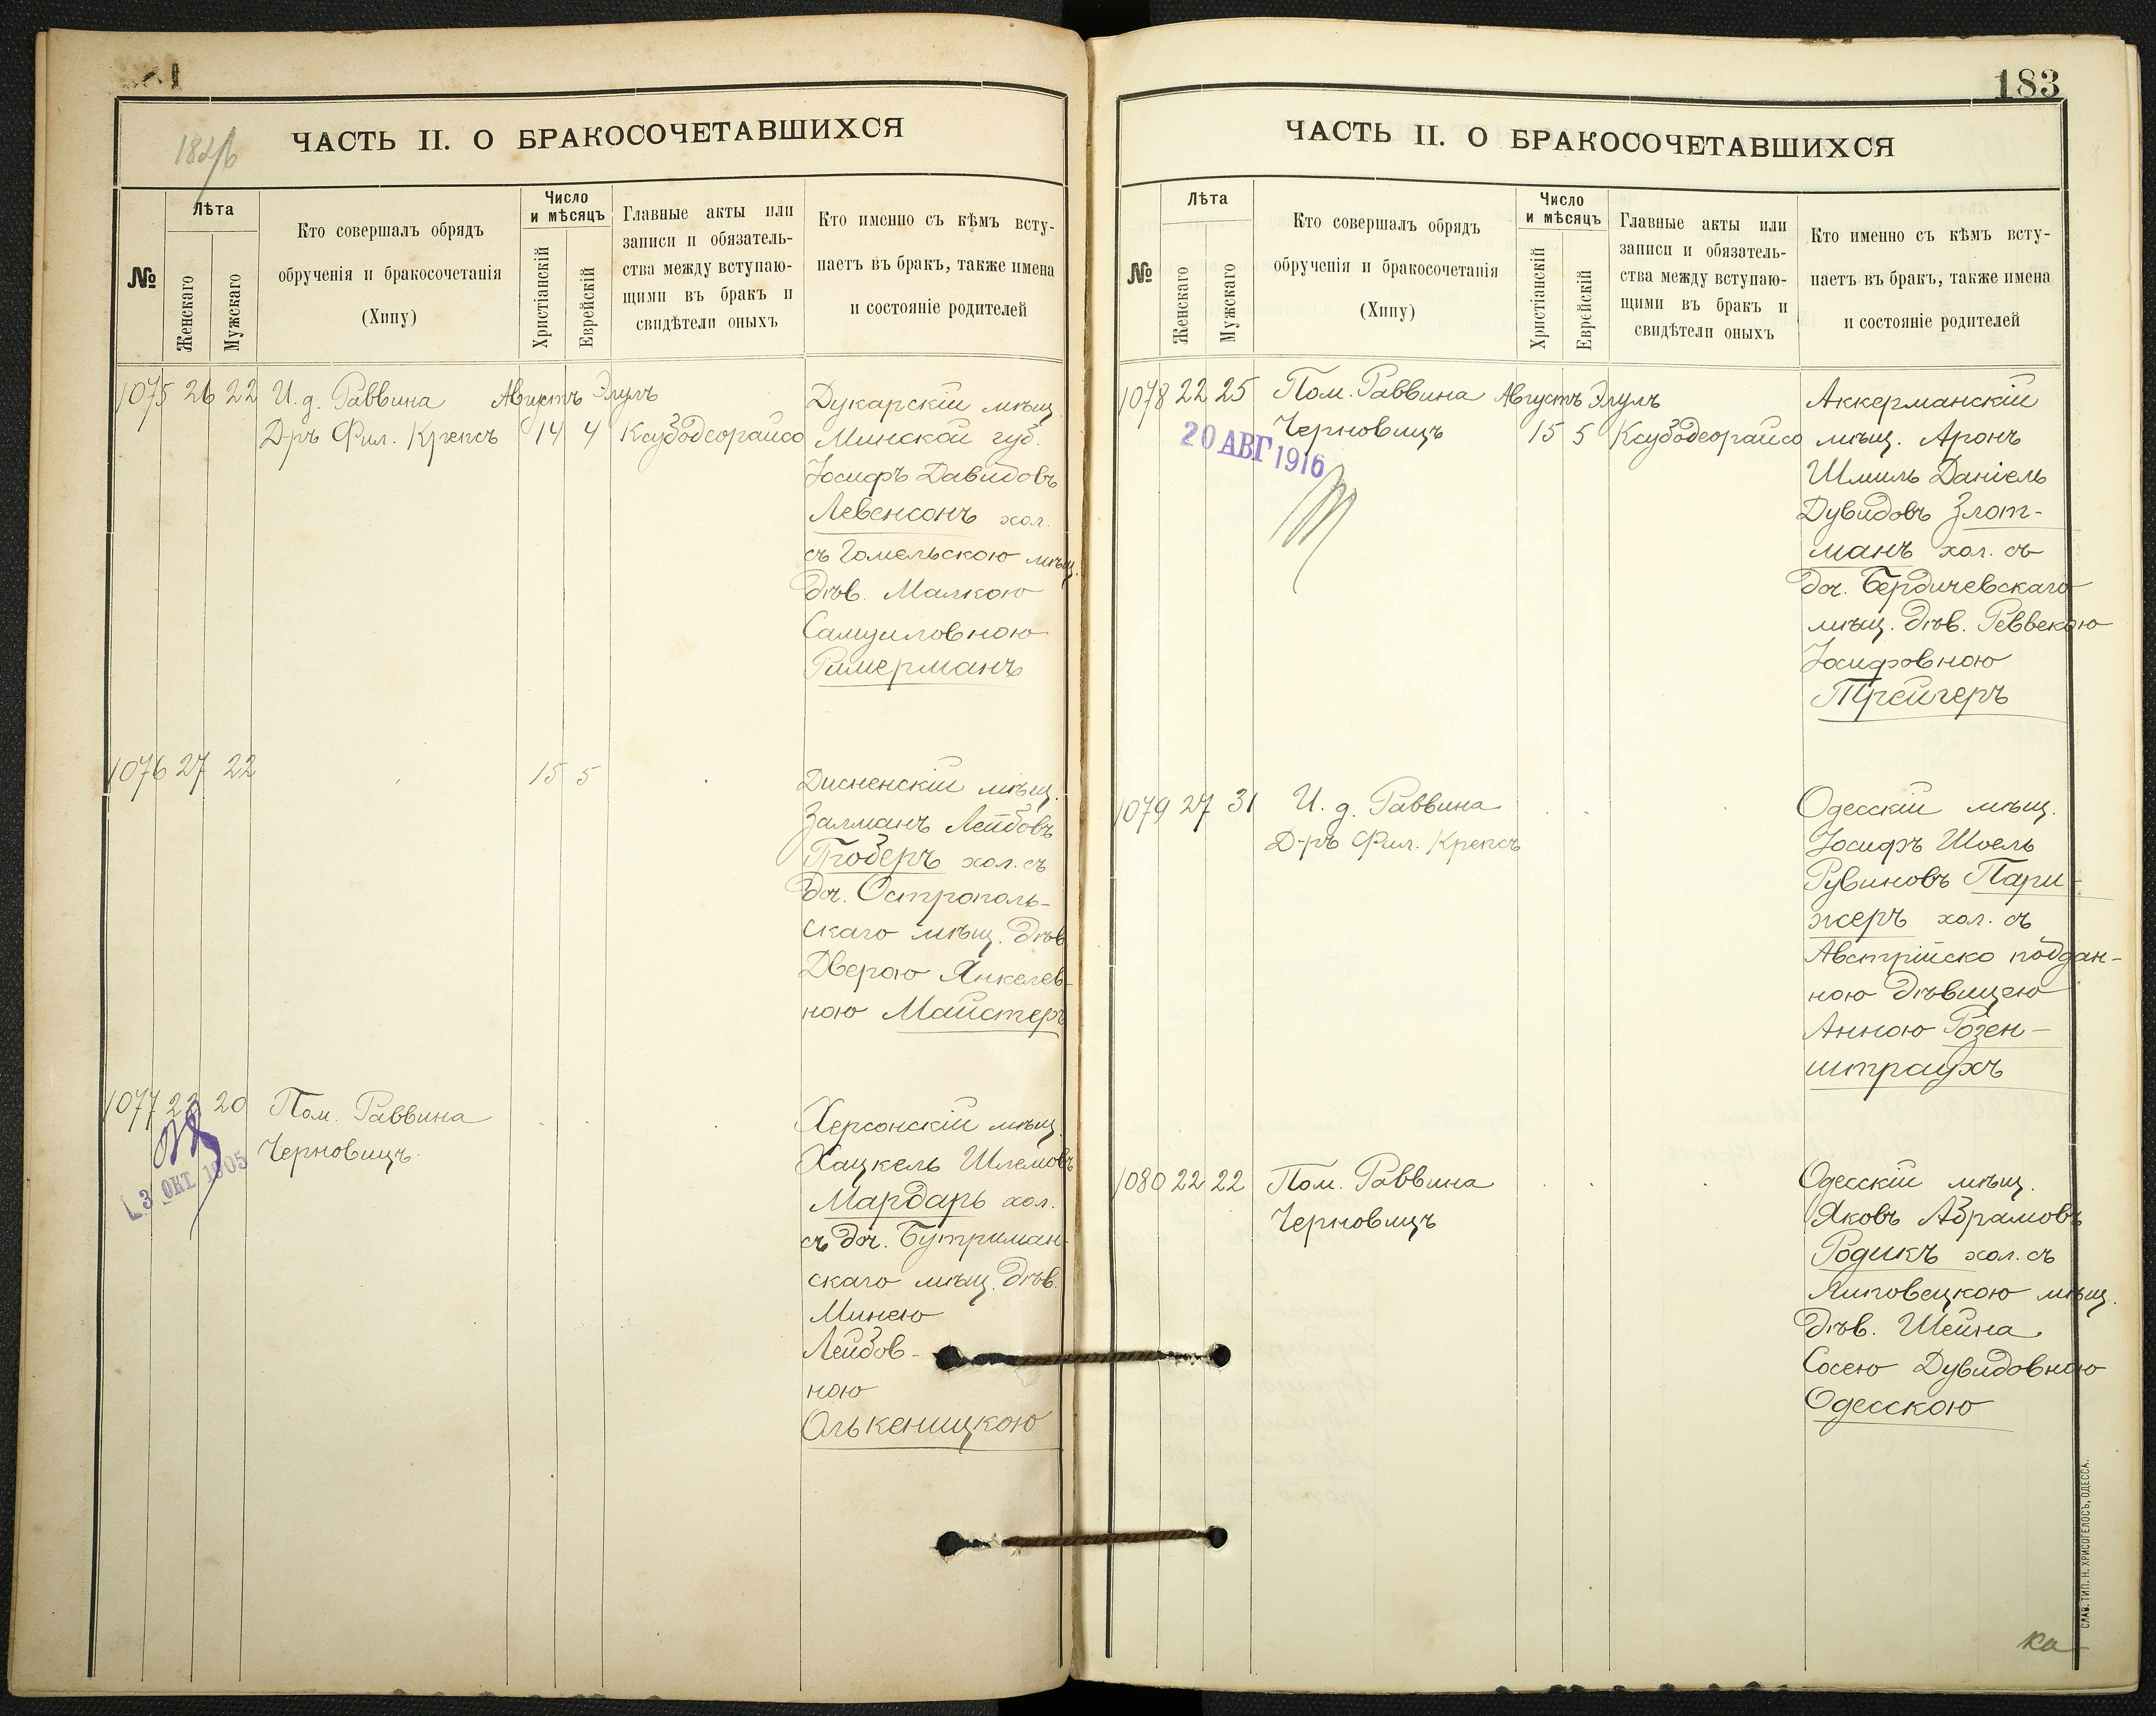 ЧАСТЬ II. О БРАКОСОЧЕТАВШИХСЯ
№
Лѣта
Женскаго
Мужскаго
Кто совершалъ обрядъ
обрученія и бракосочетанія
(Хипу)
Число
и мѣсяцъ
Христіанскій
Еврейскій
Главные акты или
записи и обязатель-
ства между вступаю-
щими въ бракъ и
свидѣтели оныхъ
Кто именно съ кѣмъ всту-
паетъ въ бракъ, также имена
и состояніе родителей
1075 26 22 И. д. Раввина Августъ Элулъ
Д-ръ Фил. Крепсъ 14 4 Ксубодеорайсо
Дукарскій мѣщ.
Минской губ.
Іосифъ Давидовъ
Левенсонъ хол.
съ Гомельскою мѣщ.
дѣв. Малкою
Самуиловною
Римерманъ
1076 27 22 15 5
Дисненскій мѣщ.
Залманъ Лейбовъ
Гроберъ хол. съ
доч. Острополь-
скаго мѣщ. дѣв.
Дверою Янкелев-
ною Майстеръ
1077 22 20 Пом. Раввина
Черновицъ.
3 ОКТ. 1905
Херсонскій мѣщ.
Хацкель Шлемовъ
Мардарь хол.
съ доч. Бутриман-
скаго мѣщ. дѣв.
Минею
Лейбов-
ною
Олькеницкою
183
ЧАСТЬ II. О БРАКОСОЧЕТАВШИХСЯ
№
Лѣта
Женскаго
Мужскаго
Кто совершалъ обрядъ
обрученія и бракосочетанія
(Хипу)
Число
и мѣсяцъ
Христіанскій
Еврейскій
Главные акты или
записи и обязатель-
ства между вступаю-
щими въ бракъ и
свидѣтели оныхъ
Кто именно съ кѣмъ всту-
паетъ въ бракъ, также имена
и состояніе родителей
1078 22 25 Пом. Раввина Августъ Элулъ
Черновицъ 15 5 Ксубодеорайсо
20 АВГ 1916
Аккерманскій
мѣщ. Аронъ
Шмиль Даніель
Дувидовъ Злот-
манъ хол. съ
доч. Бердичевскаго
мѣщ. дѣв. Реввекою
Іосифовною
Трейгеръ
1079 27 31 И. д. Раввина
Д-ръ Фил. Крепсъ
Одесскій мѣщ.
Іосифъ Шоель
Рувиновъ Пари-
жеръ хол. съ
Австрійско поддан-
ною дѣвицею
Анною Розен-
штраухъ
1080 22 22 Пом. Раввина
Черновицъ
Одесскій мѣщ.
Яковъ Абрамовъ
Родикъ хол. съ
Ялтовецкою мѣщ.
дѣв. Шейна
Сосею Дувидовною
Одесскою
СЛАВ. ТИП. Н. ХРИСОГЕЛОСЪ, ОДЕССА.